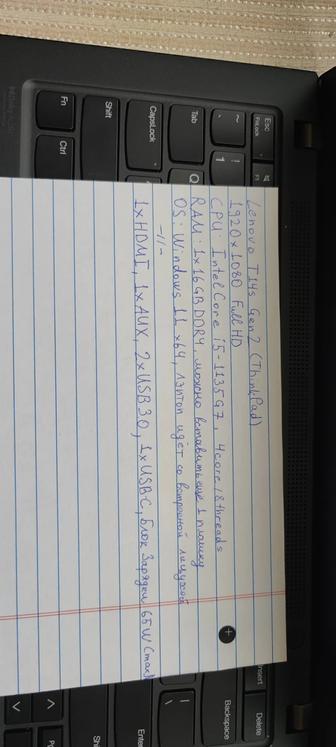 Lenovo T14s Gen2 (ThinkPad)
1920x1080 FullHD
CPU: Intel Core i5-1135G7, 4core/8threads
RAM: 1x16GB DDR4, можно вставить еще 1 плашку
OS: Windows 11 x64, лэптоп идёт со встроеной лицухой
-//-
1xHDMI, 1xAUX, 2xUSB30, 1xUSB-C, Блок зарядки 65W (max)
Esc
FnLock
F1
~
!
1
Tab
Q
CapsLock
Shift
Fn
Ctrl
Insert
Delete
Backspace
Enter
Shift